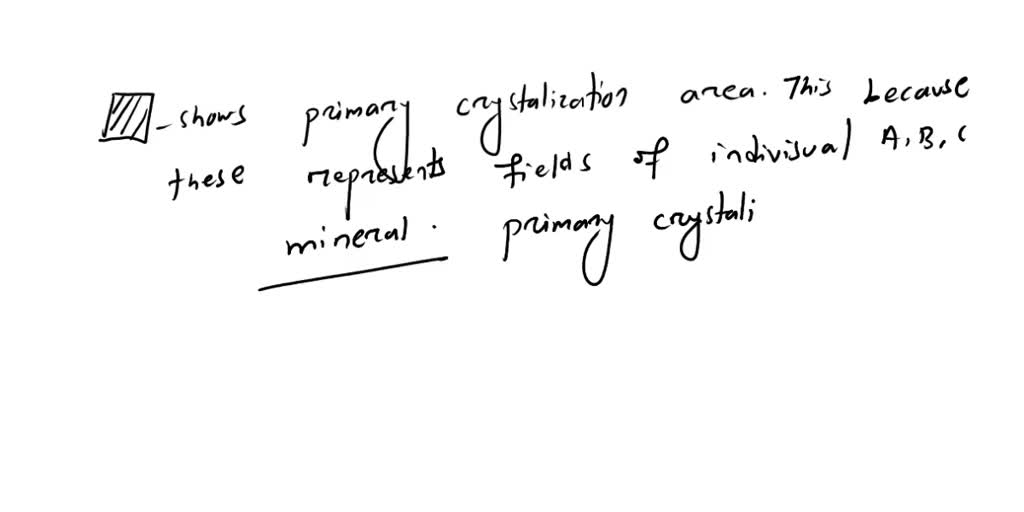 - shows primary crystalization area. This because
these represents fields of indivisual A, B, C
mineral. primary crystali